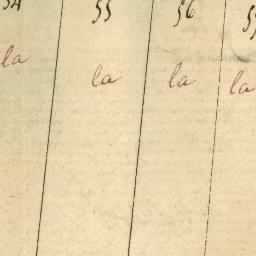 54 55 56 57
la la la la